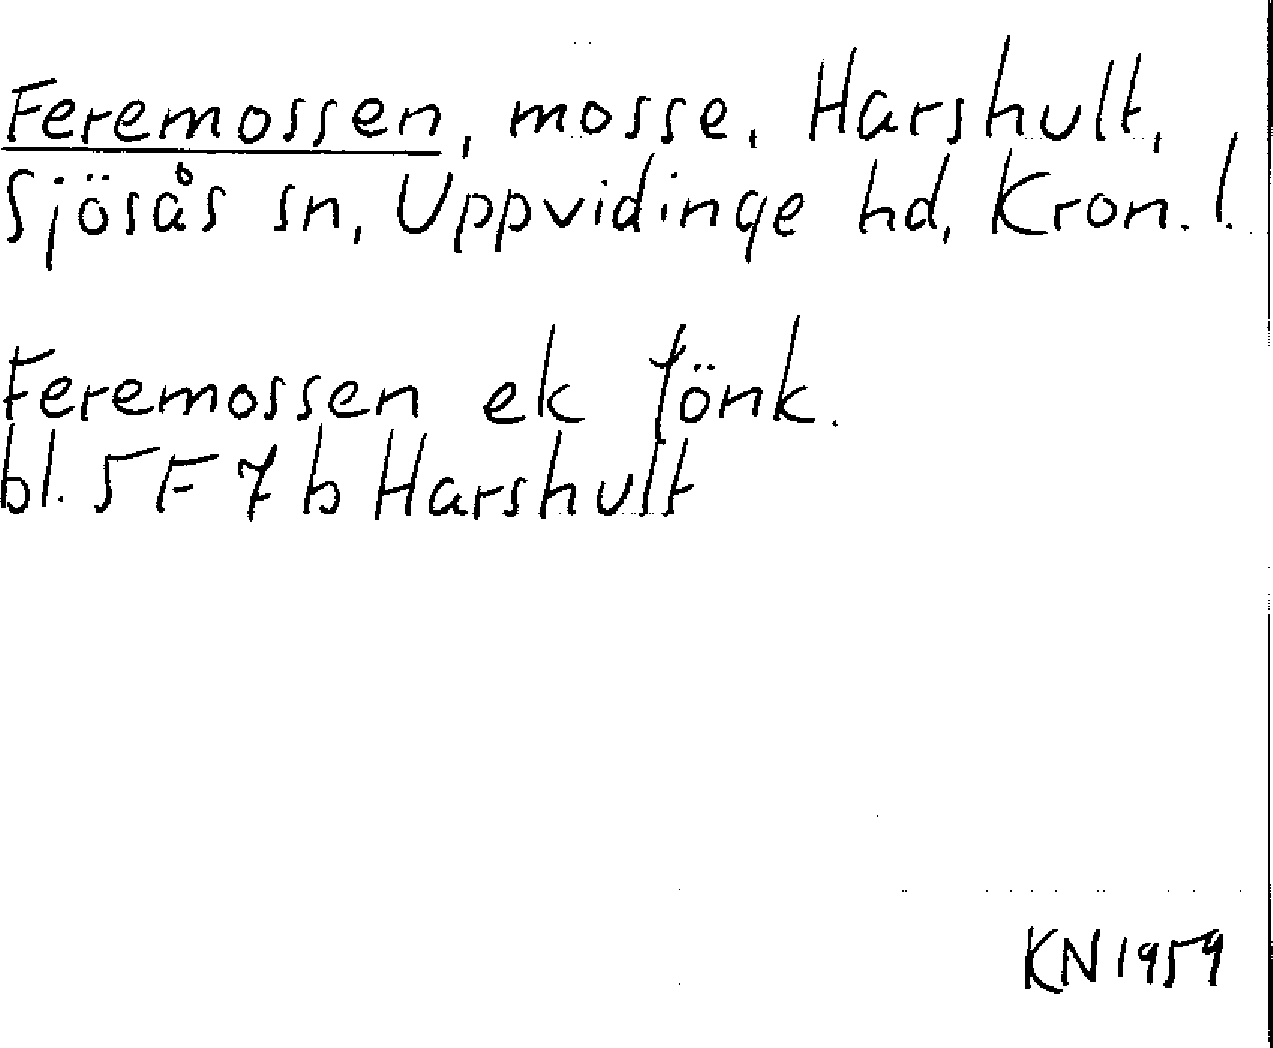 Feremossen, mosse, Harshult,
Sjösås sn, Uppvidinge hd, Kron. l.
Feremossen ek Jönk.
bl. 5 F 7 b Harshult
KN 1959